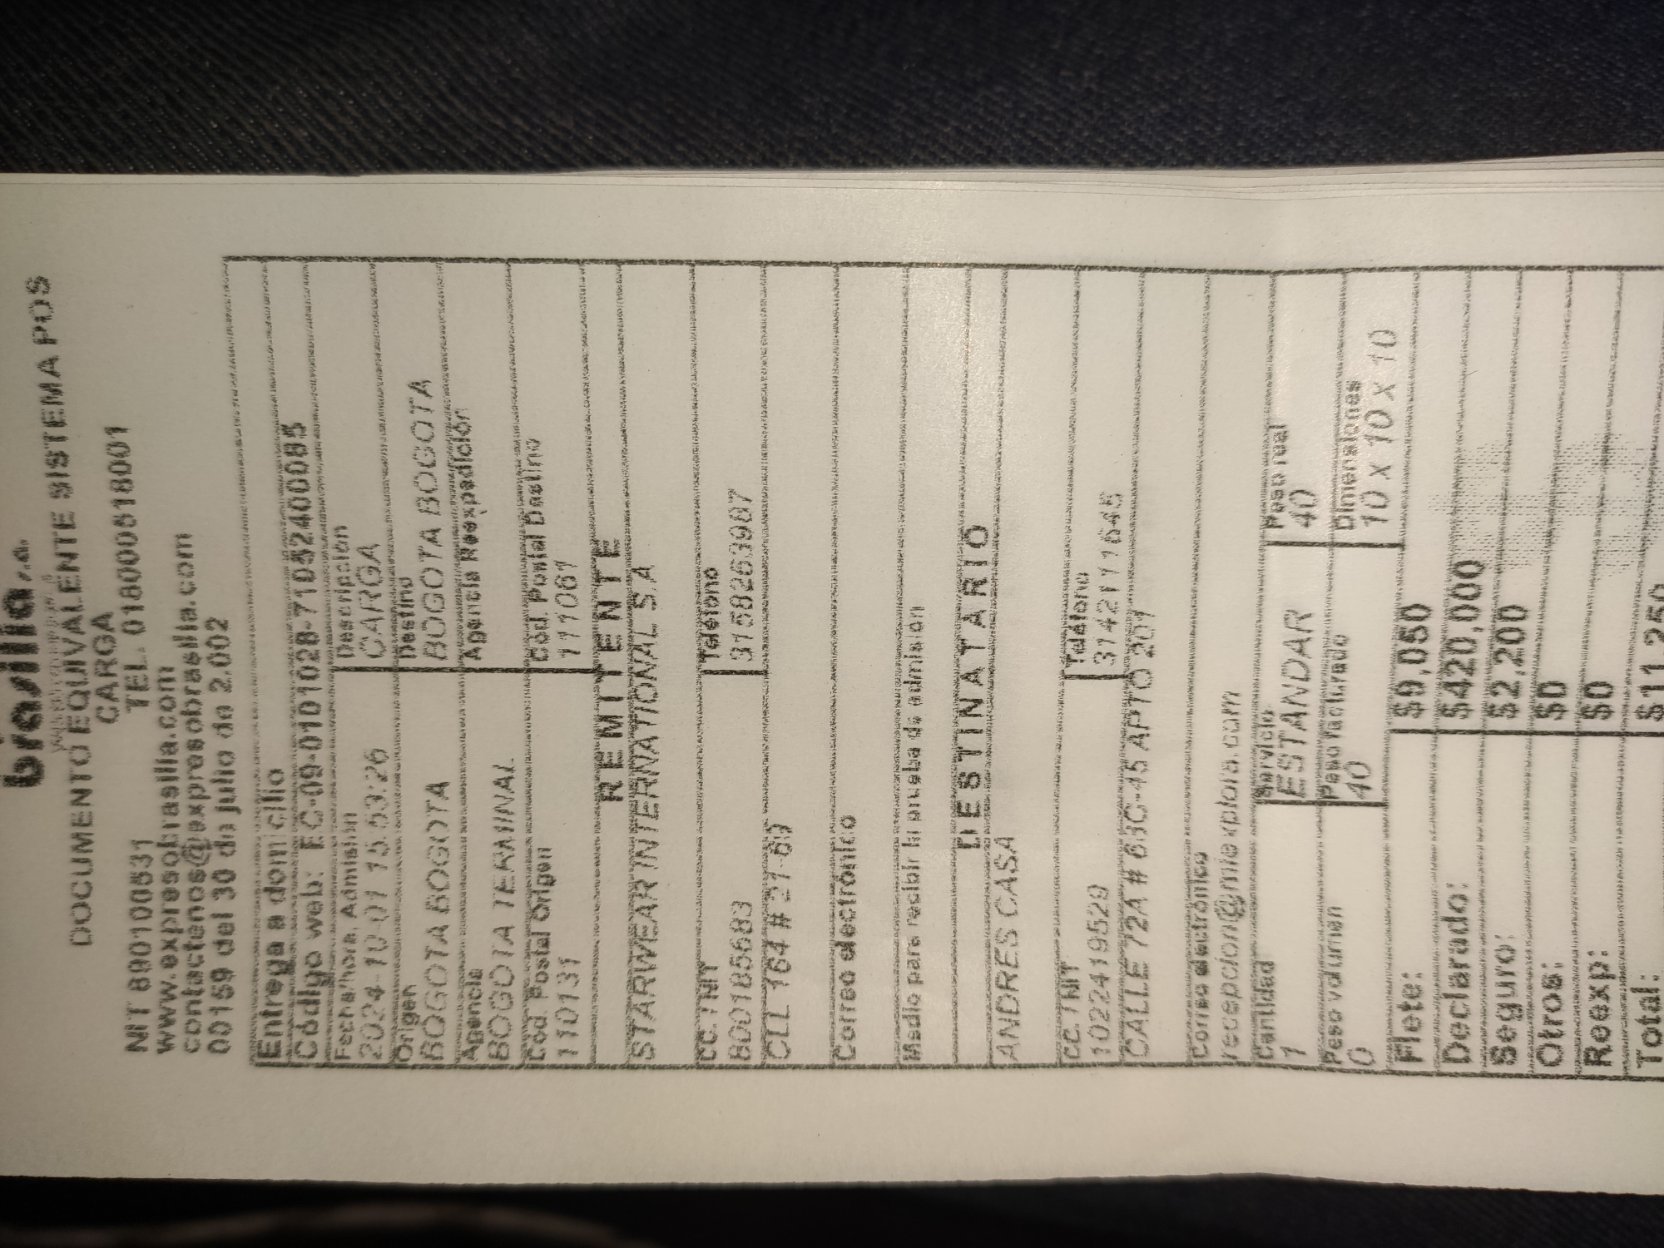 brasilia s.a.
DOCUMENTO EQUIVALENTE SISTEMA POS
CARGA
NIT 890100531 TEL. 0180000518001
www.expresobrasilia.com
contactenos@expresobrasilia.com
00159 del 30 de julio de 2.002
Entrega a domicilio
Código web:
Fecha/hora Admisión Descripción
2024-10-01 15:53:26 CARGA
Origen Destino
BOGOTA BOGOTA BOGOTA BOGOTA
Agencia Agencia Reexpedición
BOGOTA TERMINAL
Cód. Postal Origen Cód. Postal Destino
110131 111061
REMITENTE
STARWEAR INTERNATIONAL S.A
CC. / NIT Teléfono
800185683 3158263987
CLL 164 # 21-69
Correo electrónico
Medio para recibir la prueba de admisión
DESTINATARIO
ANDRES CASA
CC. / NIT Teléfono
1022419529 3142111645
CALLE 72A # 63C-45 APTO 201
Correo electrónico
Cantidad Servicio Peso real
1 ESTANDAR 40
Peso volumen Peso facturado Dimensiones
0 40 10 x 10 x 10
Flete: $9,050
Declarado: $420,000
Seguro: $2,200
Otros: $0
Reexp: $0
Total: $11,250